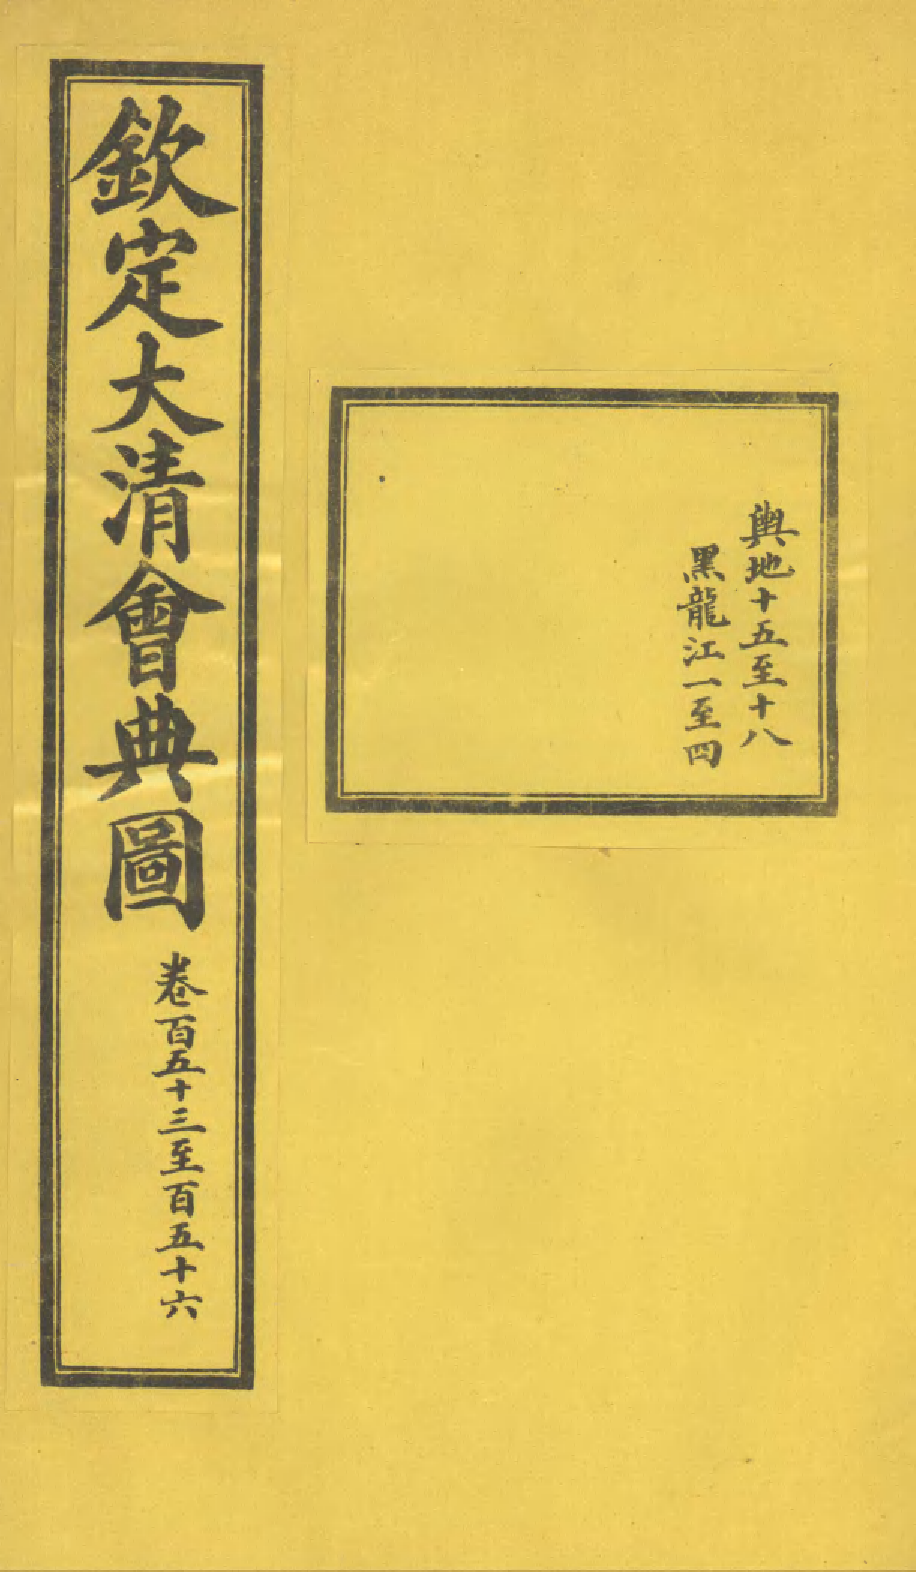 輿地十五至十八
黑龍江一至四
欽定大清會典圖
卷百五十三至百五十六